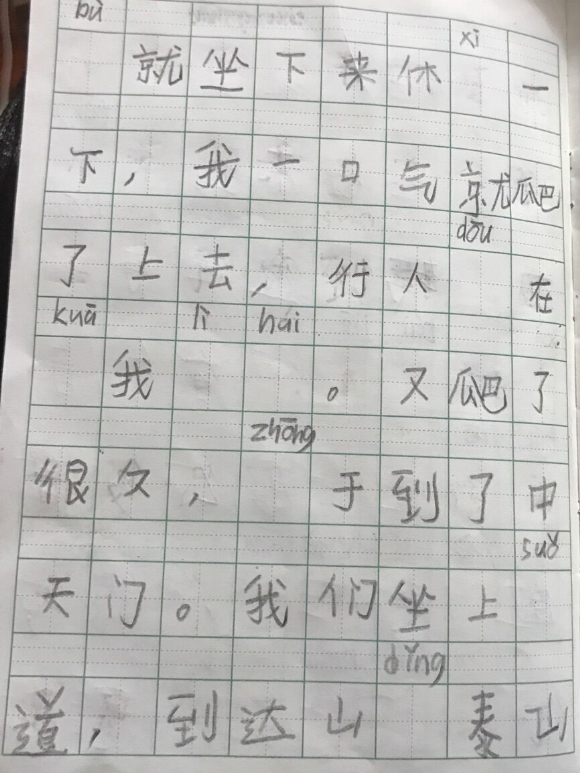 bù
xī
就坐下来休 一
下，我一口气就爬
dōu
了上去，行人 在
kuā lì hai
我 。又爬了
zhōng
很久， 于到了中
suǒ
天门。我们坐上
dǐng
道，到达山 泰山